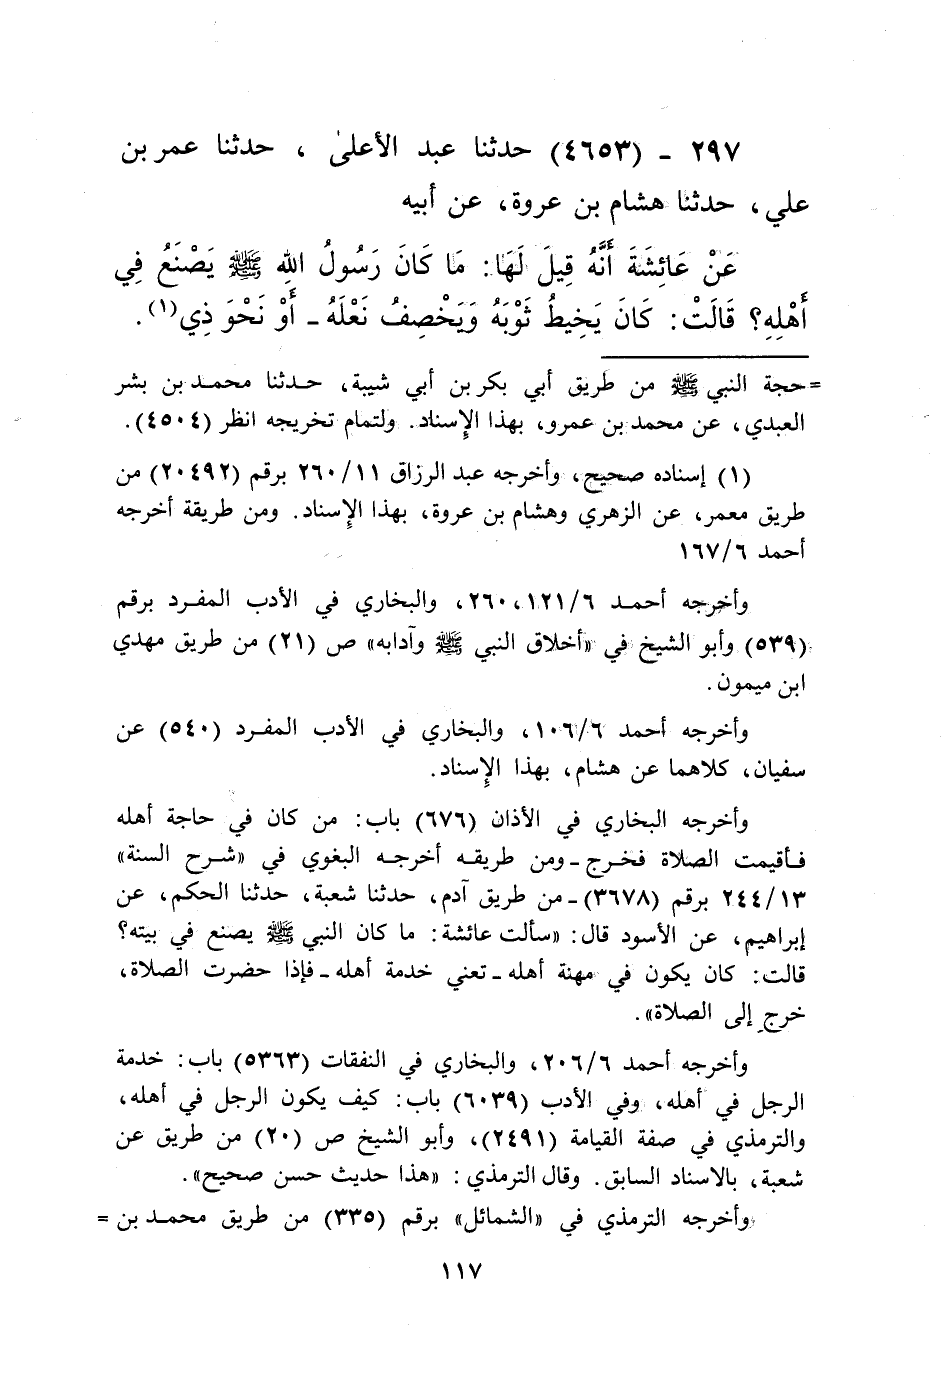 ٢٩٧ ـ (٤٦٥٣) حدثنا عبد الأعلىٰ ، حدثنا عمر بن
علي، حدثنا هشام بن عروة، عن أبيه
عَنْ عَائِشَةَ أَنَّهُ قِيلَ لَهَا: مَا كَانَ رَسُولُ اللهِ ﷺ يَصْنَعُ فِي
أَهْلِهِ؟ قَالَتْ: كَانَ يَخِيطُ ثَوْبَهُ وَيَخْصِفُ نَعْلَهُ ـ أَوْ نَحْوَ ذِي(١).
= حجة النبي ﷺ من طريق أبي بكر بن أبي شيبة، حدثنا محمد بن بشر
العبدي، عن محمد بن عمرو، بهذا الإسناد. ولتمام تخريجه انظر (٤٥٠٤).
(١) إسناده صحيح، وأخرجه عبد الرزاق ٢٦٠/١١ برقم (٢٠٤٩٢) من
طريق معمر، عن الزهري وهشام بن عروة، بهذا الإسناد. ومن طريقة أخرجه
أحمد ١٦٧/٦
وأخرجه أحمد ١٢١/٦، ٢٦٠، والبخاري في الأدب المفرد برقم
(٥٣٩) وأبو الشيخ في «أخلاق النبي ﷺ وآدابه» ص (٢١) من طريق مهدي
ابن ميمون.
وأخرجه أحمد ١٠٦/٦، والبخاري في الأدب المفرد (٥٤٠) عن
سفيان، كلاهما عن هشام، بهذا الإسناد.
وأخرجه البخاري في الأذان (٦٧٦) باب: من كان في حاجة أهله
فأقيمت الصلاة فخرج ـ ومن طريقه أخرجه البغوي في «شرح السنة»
٢٤٤/١٣ برقم (٣٦٧٨) ـ من طريق آدم، حدثنا شعبة، حدثنا الحكم، عن
إبراهيم، عن الأسود قال: «سألت عائشة: ما كان النبي ﷺ يصنع في بيته؟
قالت: كان يكون في مهنة أهله ـ تعني خدمة أهله ـ فإذا حضرت الصلاة،
خرج إلى الصلاة».
وأخرجه أحمد ٢٠٦/٦، والبخاري في النفقات (٥٣٦٣) باب: خدمة
الرجل في أهله، وفي الأدب (٦٠٣٩) باب: كيف يكون الرجل في أهله،
والترمذي في صفة القيامة (٢٤٩١)، وأبو الشيخ ص (٢٠) من طريق عن
شعبة، بالاسناد السابق. وقال الترمذي: «هذا حديث حسن صحيح».
وأخرجه الترمذي في «الشمائل» برقم (٣٣٥) من طريق محمد بن =
١١٧